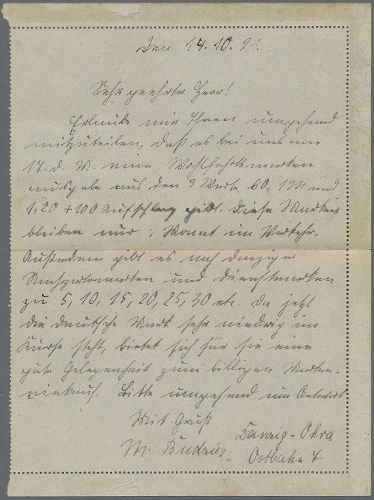 den 14.10.21.
Sehr geehrter Herr!
Erlaube mir Ihnen umgehend
mitzuteilen, daß es bei uns am
17. d. M. eine Wohlfahrtsmarken
ausgabe mit den 3 Werten 60, 1M und
1,20 + 100 Aufschlag gibt. Diese Marken
bleiben nur 1 Monat im Verkehr.
Außerdem gibt es noch Danziger
und Dienstmarken
zu 5, 10, 15, 20, 25, 30 etc. Da jetzt
die deutsche Mark sehr niedrig im
Kurse steht, bietet sich für sie eine
gute Gelegenheit zum billigen Marken-
einkauf. Bitte umgehend um Antwort
Mit Gruß
M. Danzig-Ohra
Ostbahn 4